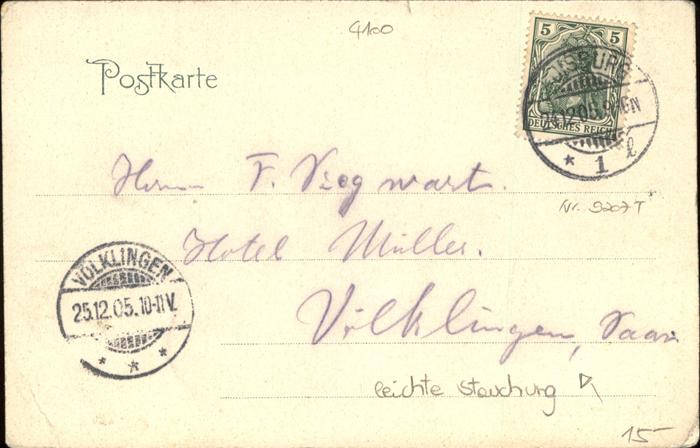 4100
Postkarte
5 5
DEUTSCHES REICH
DUISBURG
24.12.05.
* 1 l
Herrn F. Siegwart.
Nr. 9207 T
Hotel Müller.
VÖLKLINGEN
25.12.05.10-11V.
* * *
Völklingen, Saar
leichte Stauchung
15-